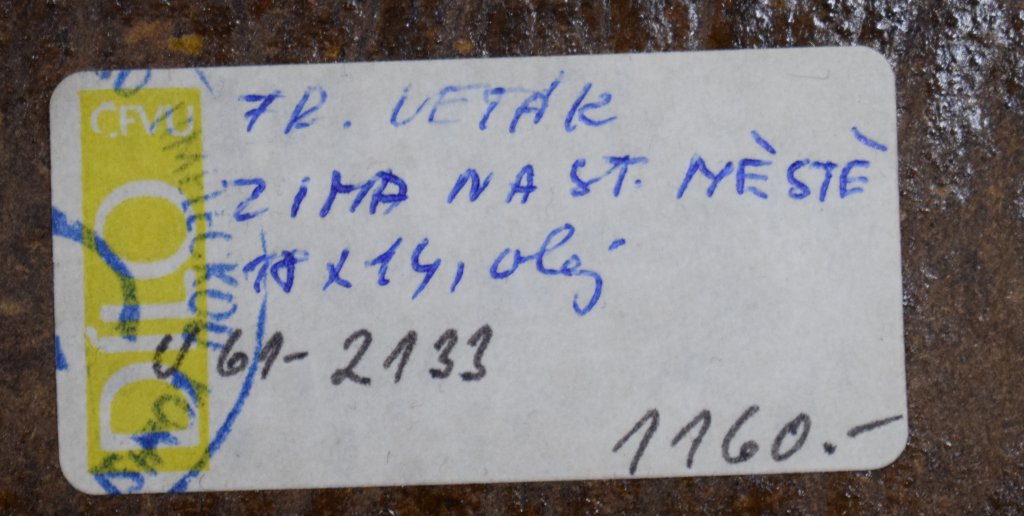 ČFVU
DÍLO
FR. VETÁK
ZIMA NA ST. MĚSTĚ
18 x 14, olej
U 61-2133
1160.-